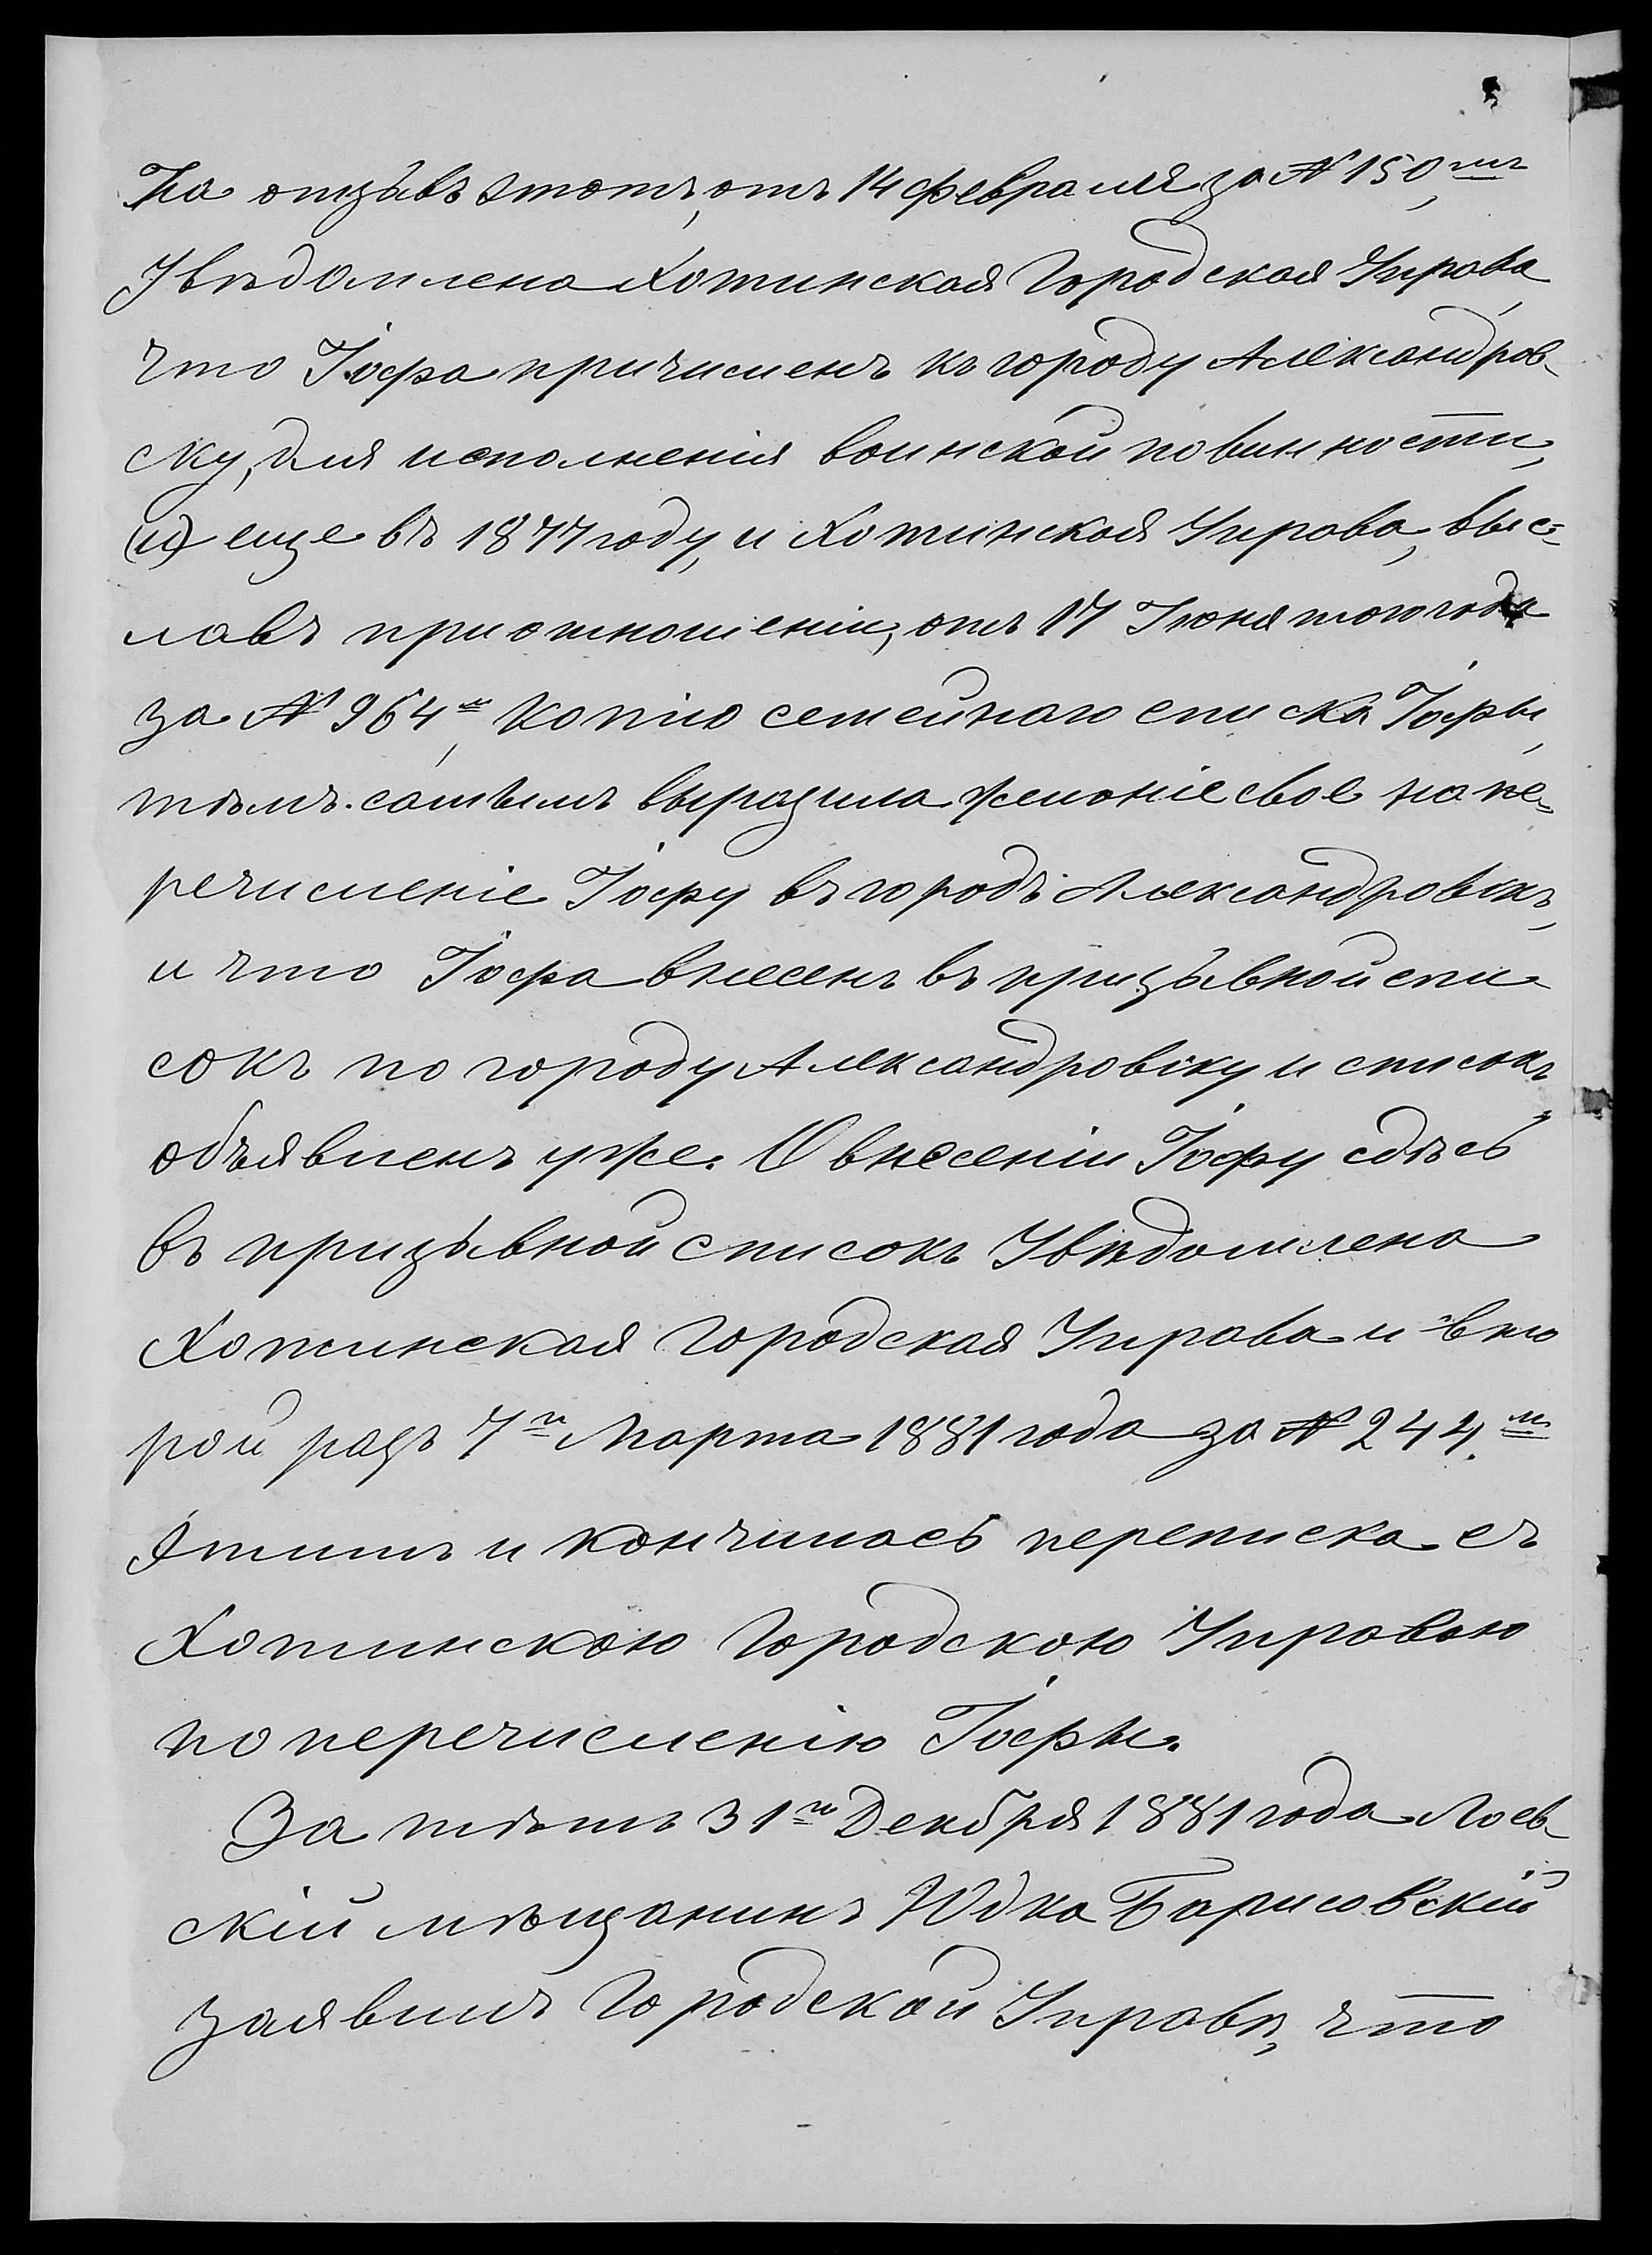 На отзывъ этотъ, отъ 14 февраля за № 150, мъ
Увѣдомлена Хотинская Городская Управа,
что Іофа причисленъ къ городу Александров-
ску, для исполненія воинской повинности,
(и) еще въ 1877 году, и Хотинская Управа, выс-
лавъ при отношеніи, отъ 17 Іюня того года
за № 964 м, копію семейнаго списка Іофы,
тѣмъ самымъ выразила желаніе свое на пе-
речисленіе Іофу въ городъ Александровскъ,
и что Іофа внесенъ въ призывной спи-
сокъ по городу Александровску и списокъ
объявленъ уже. О внесеніи Іофу сдѣсь
въ призывной списокъ Увѣдомлена
Хотинская Городская Управа и вто
рой разъ 7 го Марта 1881 года за № 244. м
Этимъ и кончилась переписка съ
Хотинскою Городскою Управою
по перечисленію Іофы.
За тѣмъ 31 го Декабря 1881 года Лоев-
скій мѣщанинъ Юдка Борисовскій
заявилъ Городской Управѣ, что